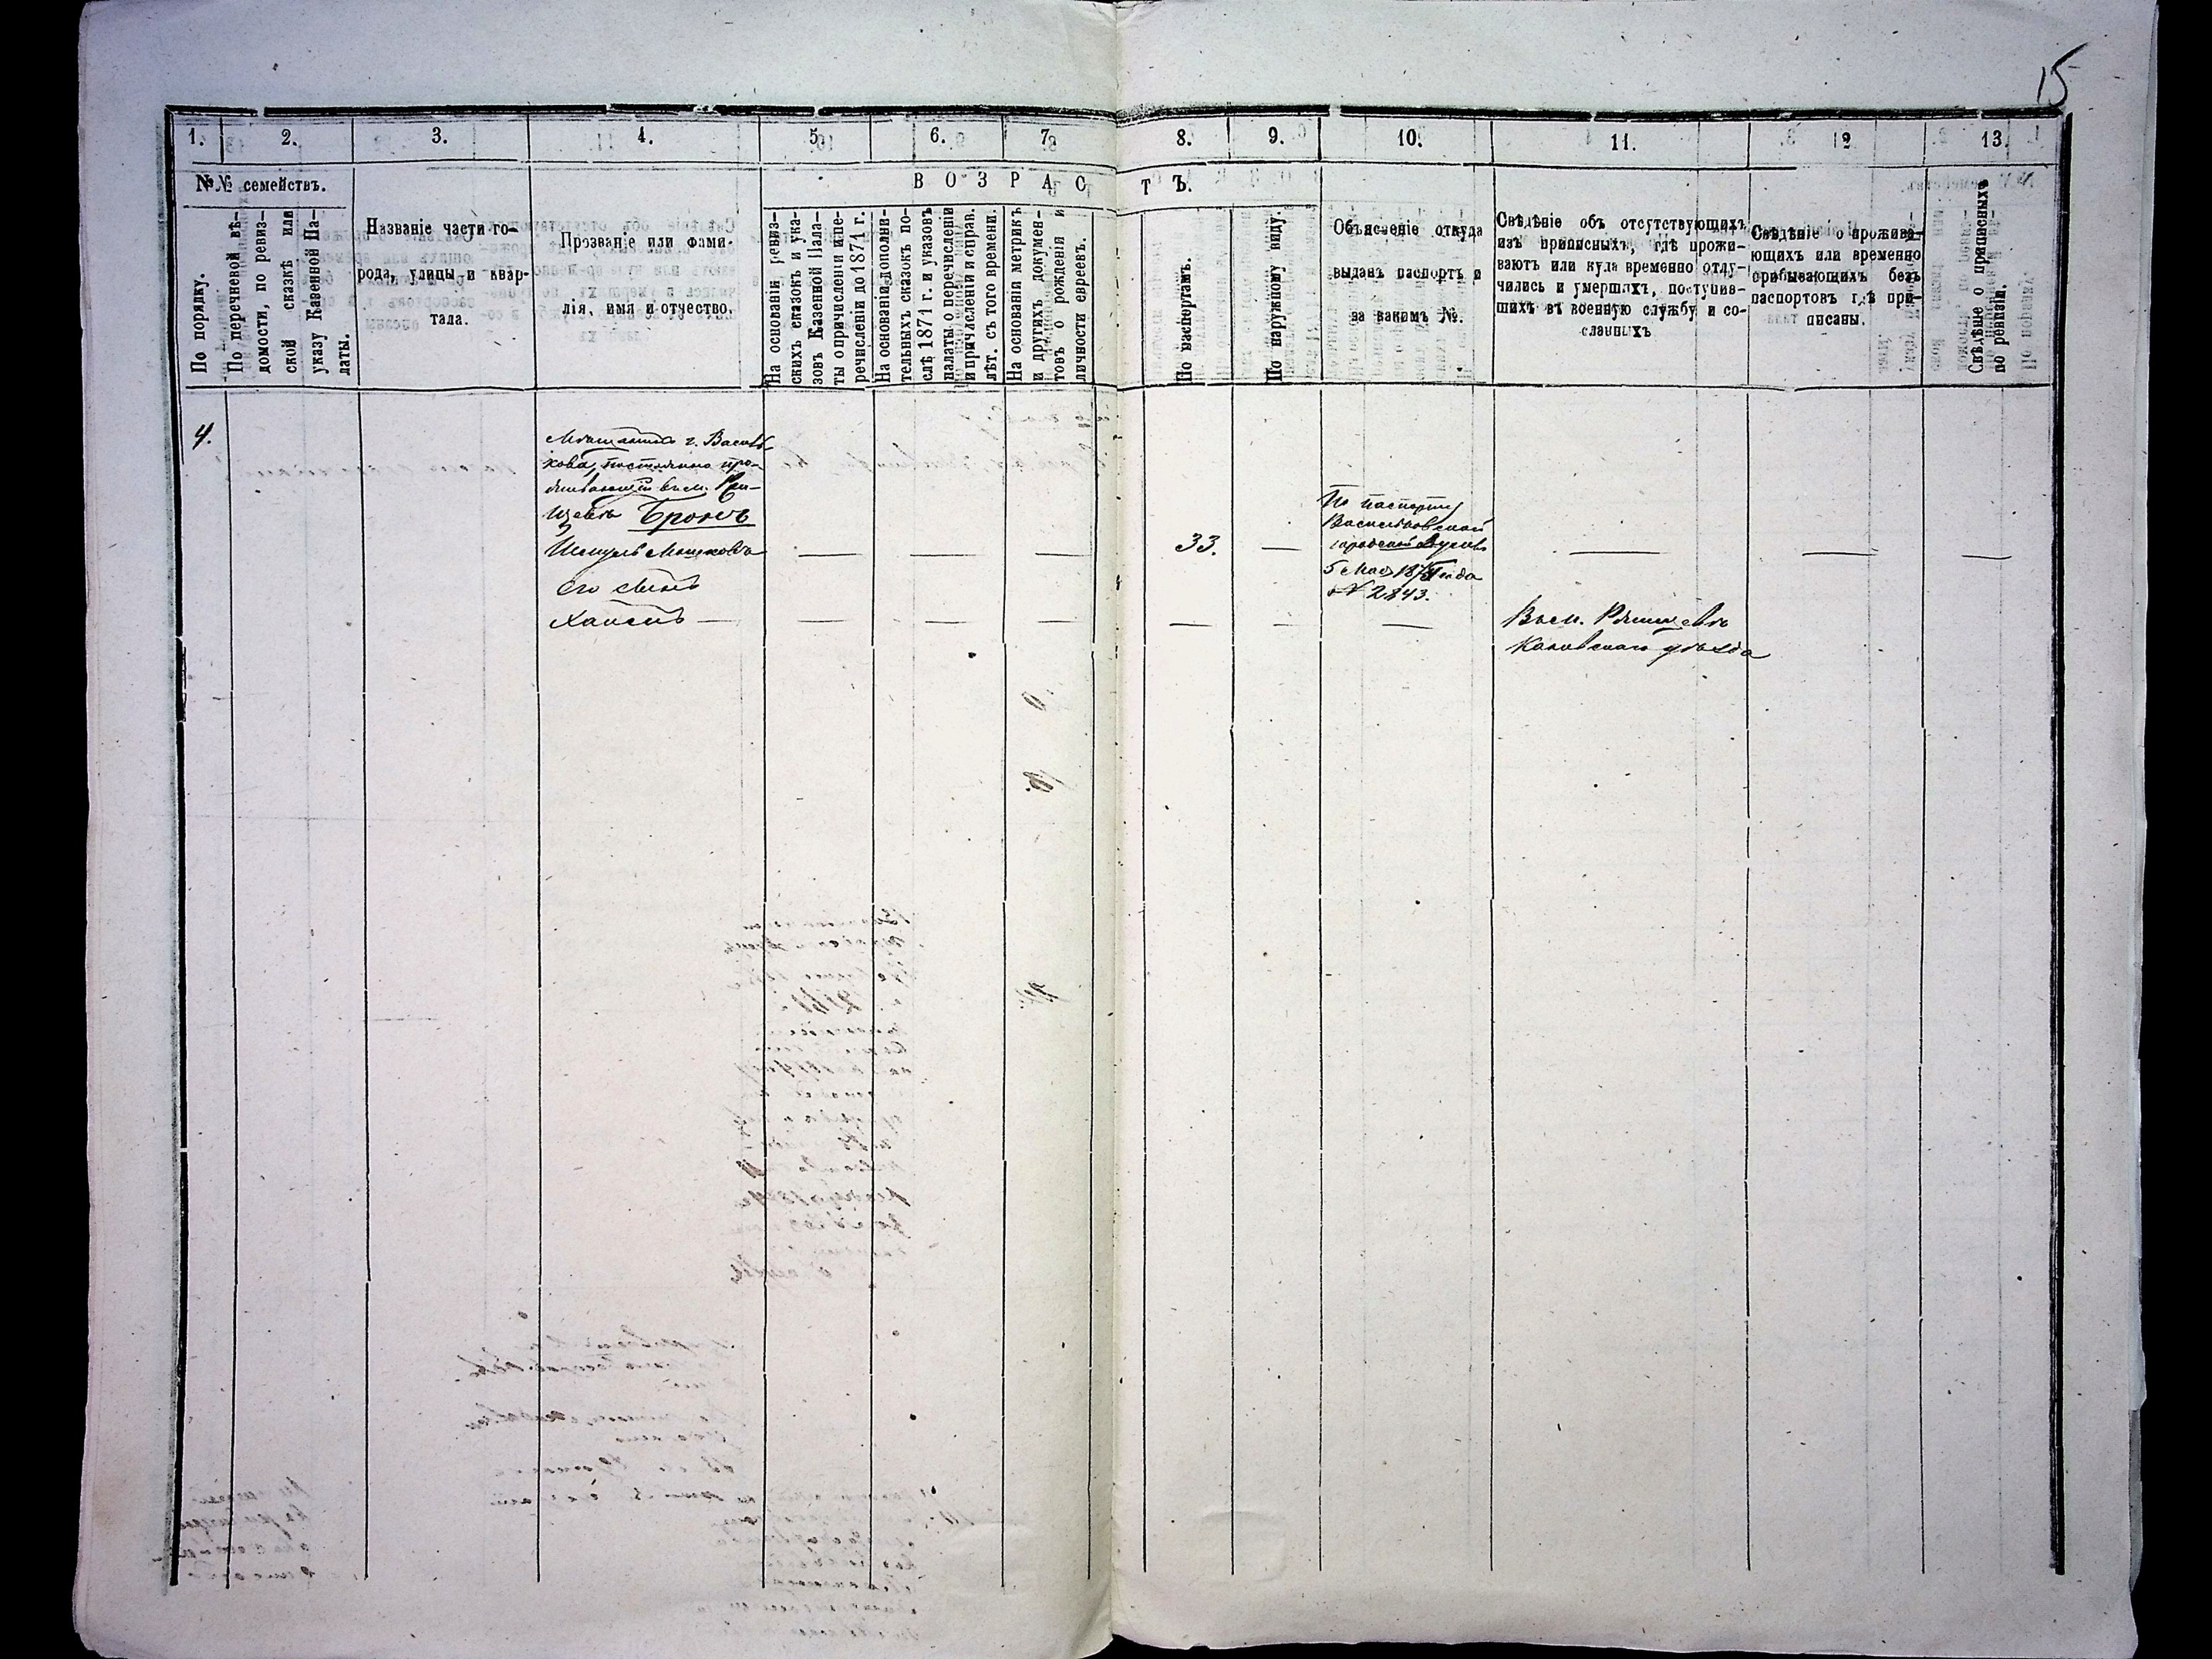 15
1. 2. 3. 4. 5. 6. 7. 8. 9. 10. 11. 12 13.
№№ семействъ.
ВОЗРАСТЪ.
По порядку.
По перечневой вѣ-
домости, по ревиз-
ской сказкѣ или
указу Казенной Па-
латы.
Названіе части го-
рода, улицы и квар-
тала.
Прозваніе или фами-
лія, имя и отчество.
На основаніи ревиз-
скихъ сказокъ и ука-
зовъ Казенной Пала-
ты о причисленіи и пе-
речисленіи до 1871 г.
На основаніи дополни-
тельныхъ сказокъ по-
слѣ 1871 г. и указовъ
палаты о перечисленіи
и причисленіи и справ.
лѣт. съ того времени.
На основаніи метрикъ
и другихъ докумен-
товъ о рожденіи и
личности евреевъ.
По паспортамъ.
По наружному виду.
Объясненіе откуда
выданъ паспортъ и
за какимъ №.
Свѣдѣніе объ отсутствующихъ
изъ приписныхъ, гдѣ прожи-
ваютъ или куда временно отлу-
чились и умершихъ, поступив-
шихъ въ военную службу и со-
сланныхъ
Свѣдѣніе о прожива-
ющихъ или временно
прибывающихъ безъ
паспортовъ гдѣ при-
писаны.
Свѣдѣніе о приписныхъ
по ревизіи.
4.
Мѣщанинъ г. Василь-
кова, постоянно про-
живающій въ м.
Бронъ
Шмуль Мошковъ
33.
По паспорту
Васильковской
городской Думы
5 Мая 187 года
№ 2843.
Его сынъ
Хаимъ
Въ м. Ржищевѣ
Каневскаго уѣзда